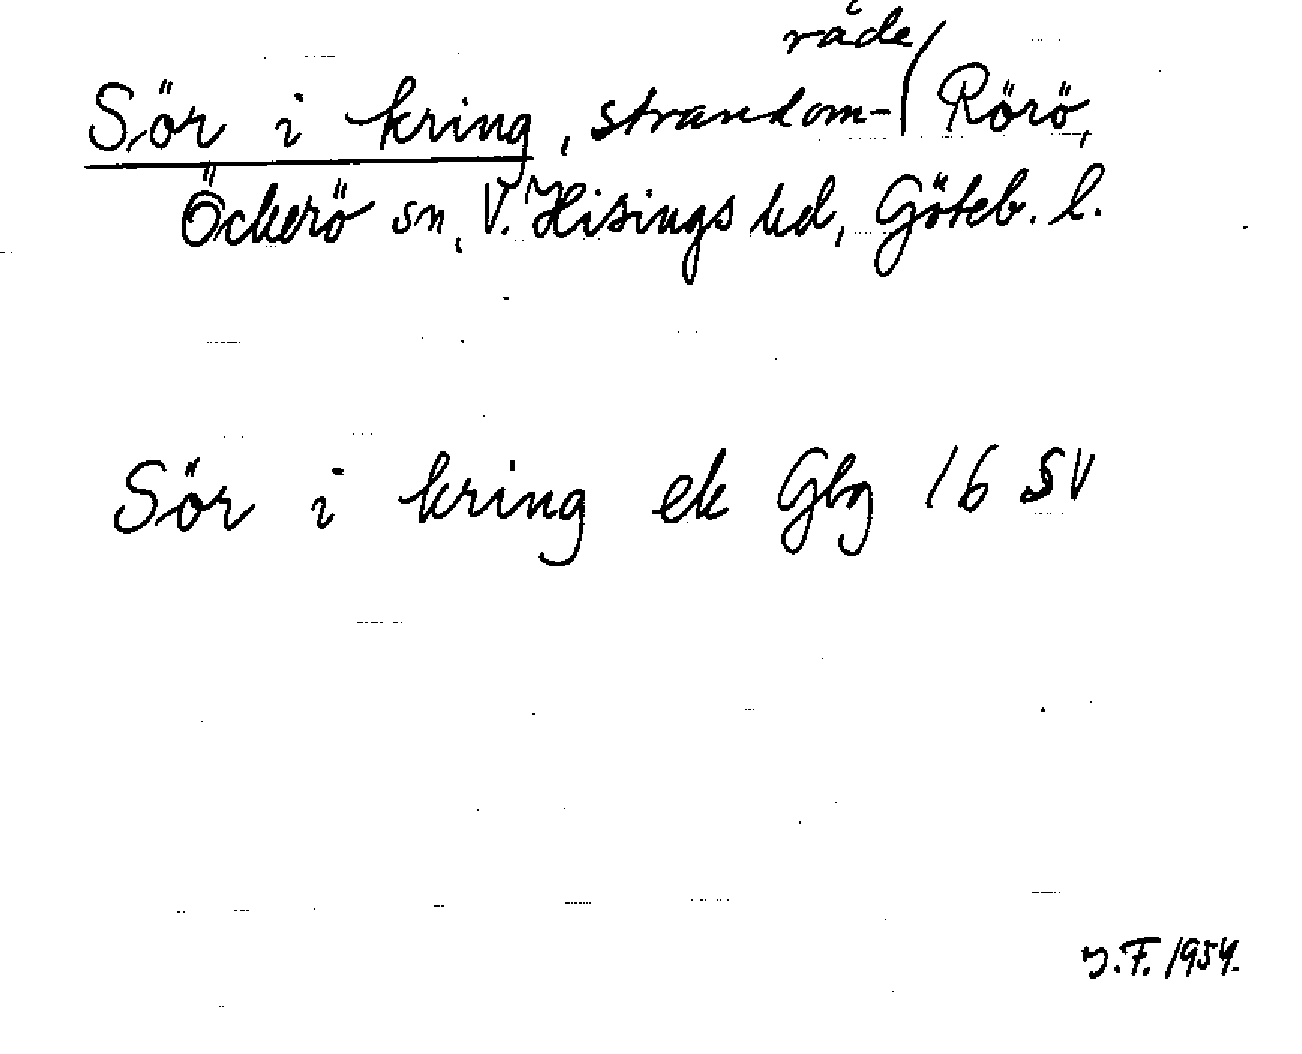 Sör i kring, strandom-råde Rörö,
Öckerö sn, V. Hisings hd, Göteb. l.
Sör i kring ek Gbg 16 SV
J.F. 1954.